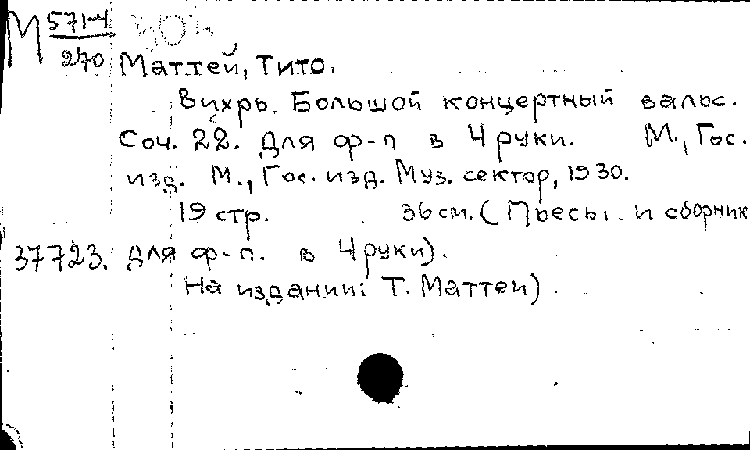 М 571-4
270
Маттей, Тито.
Вихрь. Большой концертный вальс.
Соч. 22. Для ф-п в 4 руки. М., Гос.
изд. М., Гос. изд. Муз. сектор, 1930.
19 стр. 36 см. (Пьесы и сборник
37723. для ф-п. в 4 руки).
На издании: Т. Маттеи)